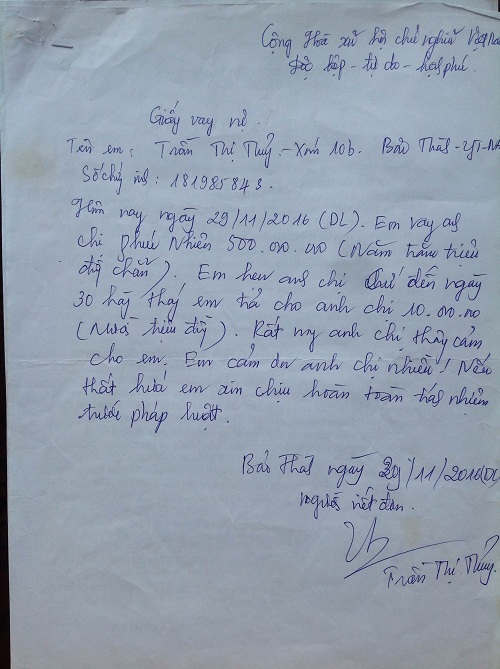 Cộng Hoà xã hội chủ nghĩa Việt Na
Độc lập - tự do - hạnh phúc.
Giấy vay nợ.
Tên em: Trần Thị Thuỷ. - Xóm 10b. Bảo Thành - YT - NA
Số chứng minh: 181985843.
Hôm nay ngày 29/11/2016 (DL). Em vay anh
chị phú Nhiên 500.000.000 (Năm trăm triệu
đồng chẵn). Em hẹn anh chị cứ đến ngày
30 hàng tháng em trả cho anh chị 10.000.000
(Mười triệu đồng). Rất mong anh chị thông cảm
cho em. Em cảm ơn anh chị nhiều! Nếu
thất hứa em xin chịu hoàn toàn trách nhiệm
trước pháp luật.
Bảo Thành ngày 29/11/2016 (DL)
Người viết đơn.
Trần Thị Thuỷ.